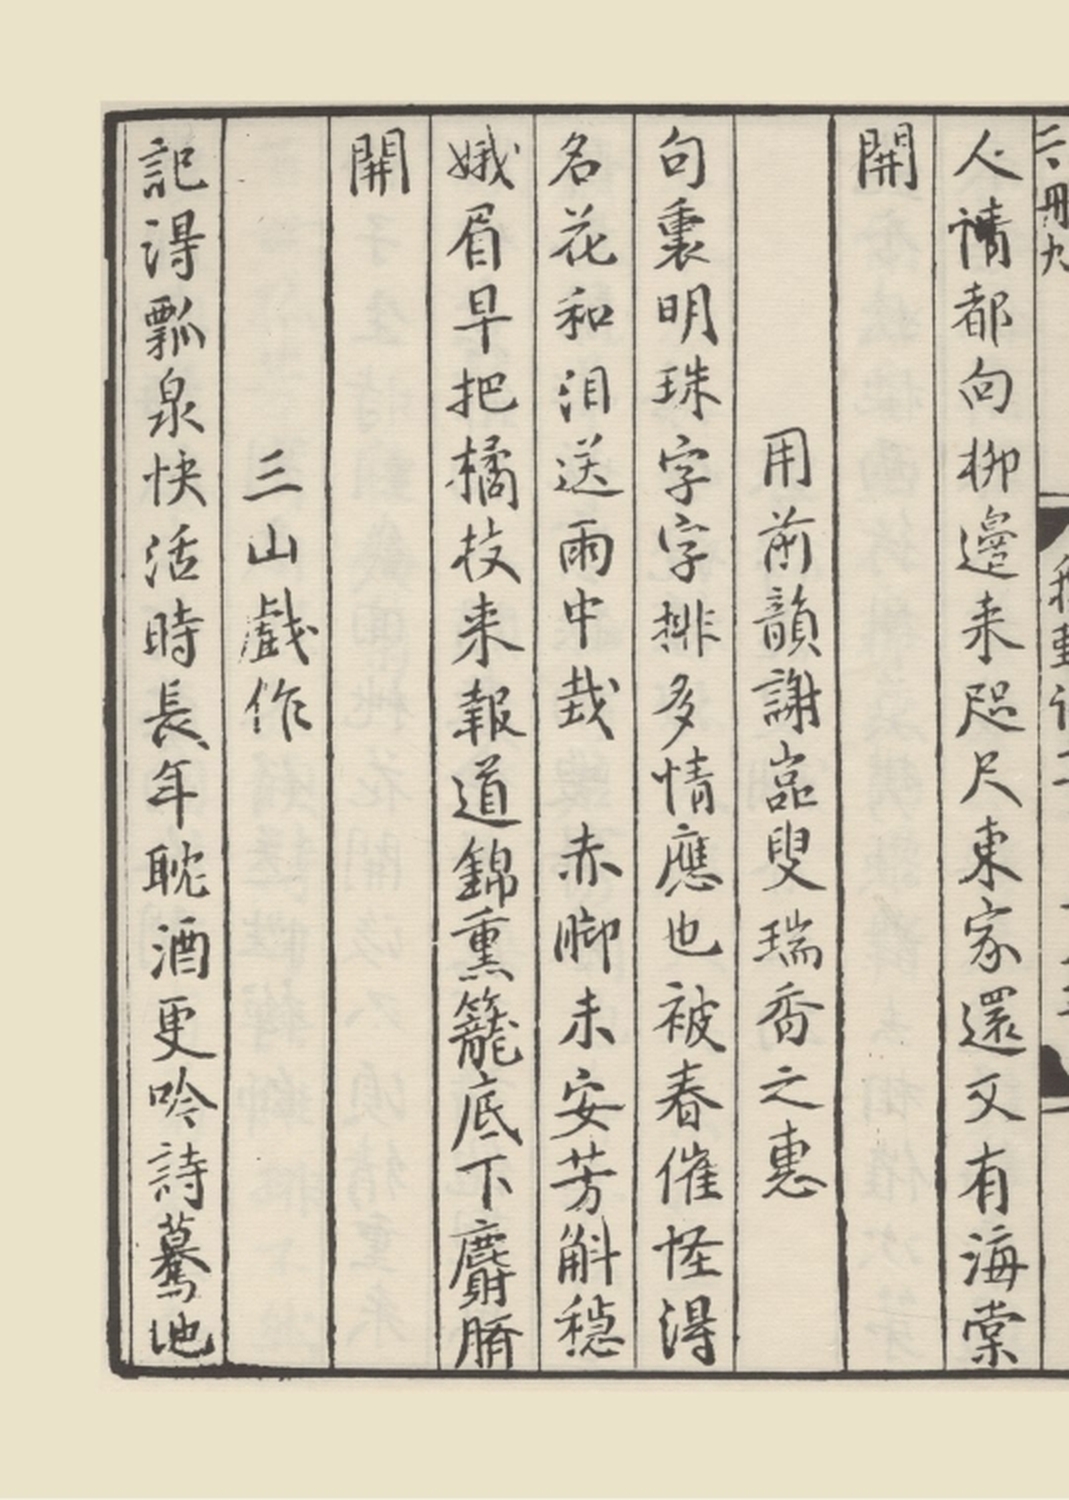 人情都向柳邊来咫尺東家還又有海棠
開
用前韻謝嵓叟瑞香之惠
句裏明珠字字排多情應也被春催怪得
名花和泪送雨中栽 赤脚未安芳斛穏
娥眉早把橘枝来報道錦熏籠底下麝臍
開
三山戯作
記得瓢泉快活時長年耽酒更吟詩驀地